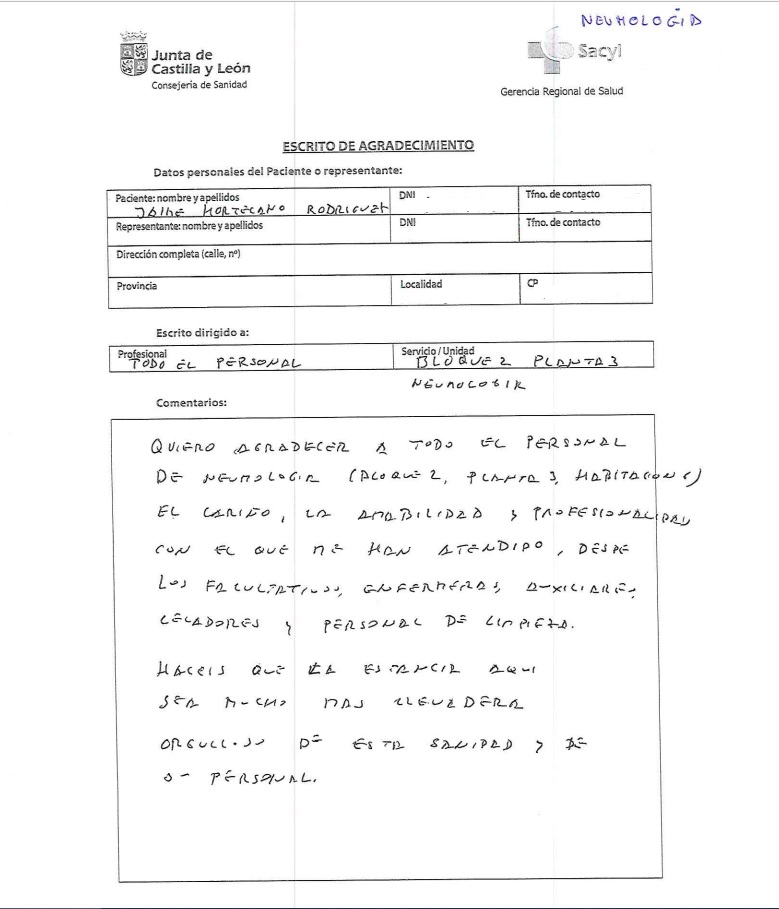 NEUMOLOGIA
Junta de
Castilla y León
Consejería de Sanidad
Sacyl
Gerencia Regional de Salud
ESCRITO DE AGRADECIMIENTO
Datos personales del Paciente o representante:
Paciente: nombre y apellidos DNI Tfno. de contacto
JAIME MORTECANO RODRIGUEZ
Representante: nombre y apellidos DNI Tfno. de contacto
Dirección completa (calle, nº)
Provincia Localidad CP
Escrito dirigido a:
Profesional Servicio / Unidad
TODO EL PERSONAL BLOQUE 2 PLANTA 3
NEUMOLOGIA
Comentarios:
QUIERO AGRADECER A TODO EL PERSONAL
DE NEUMOLOGIA (BLOQUE 2, PLANTA 3, HABITACION 6)
EL CARIÑO, LA AMABILIDAD Y PROFESIONALIDAD
CON EL QUE ME HAN ATENDIDO, DESDE
LOS FACULTATIVOS, ENFERMERAS, AUXILIARES,
CELADORES Y PERSONAL DE LIMPIEZA.
HACEIS QUE LA ESTANCIA AQUI
SEA MUCHO MAS LLEVADERA
ORGULLOSO DE ESTA SANIDAD Y DE
SU PERSONAL.